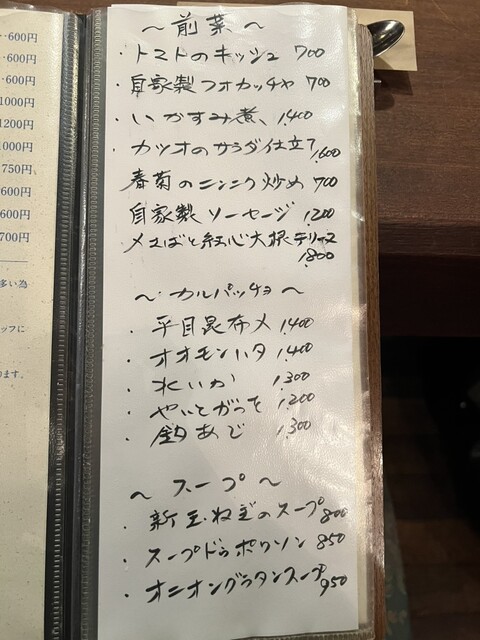 ～前菜～
・トマトのキッシュ 700
・自家製フォカッチャ 700
・いかすみ煮、1,400
・カツオのサラダ仕立て 1,600
春菊のニンニク炒め 700
自家製ソーセージ 1200
メさばと紅心大根テリーヌ 1,800
～カルパッチョ～
・平目昆布〆 1,400
・オオモンハタ 1,400
・水いか 1,300
・やいとがつを 1,200
・釣あじ 1,300
～スープ～
・新玉ねぎのスープ 800
・スープドゥポワソン 850
・オニオングラタンスープ 950
‥600円
‥600円
‥600円
1000円
1200円
1000円
750円
600円
600円
700円
多い為
ッフに
ます。